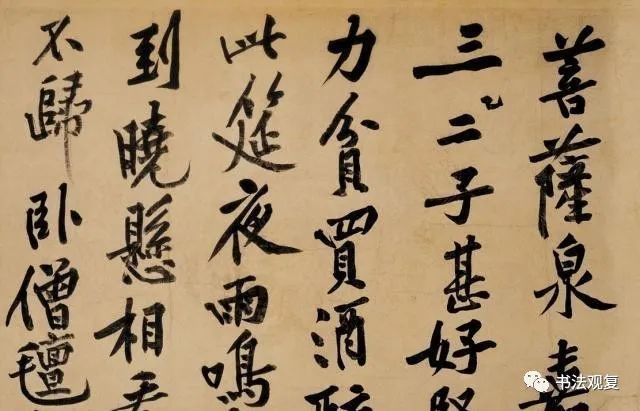 菩薩泉
三二子甚好
力貧買酒醉
此筵夜雨鳴
到曉懸相看
不歸臥僧氈
书法观复